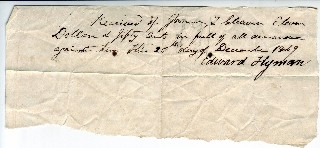 Received of Thomas T Cleaver Eleven
Dollars & fifty Cents in full of all demands
against him this 25th day of December 1849
Edward Hyman